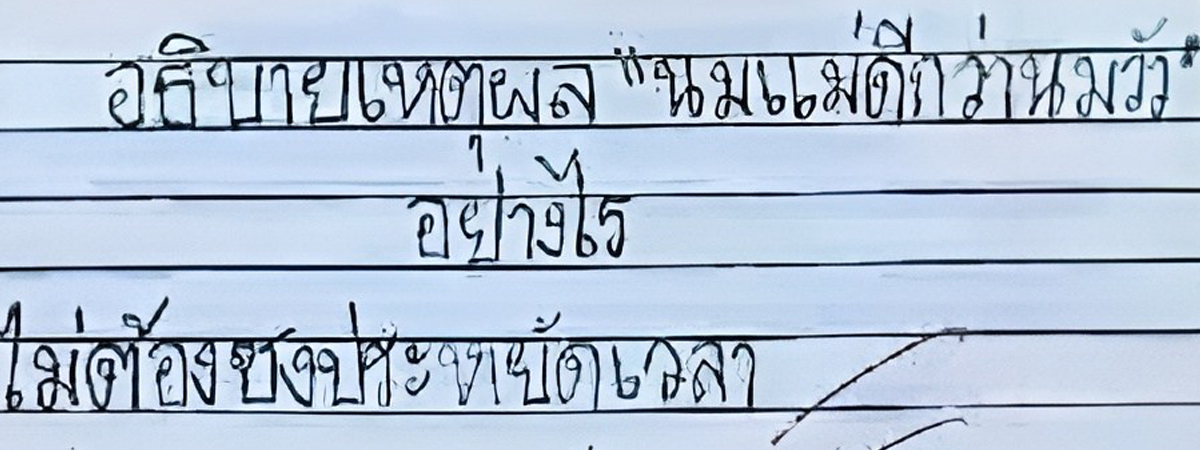 อธิบายเหตุผล "นมแม่ดีกว่านมวัว"
อย่างไร
ไม่ต้องชงประหยัดเวลา